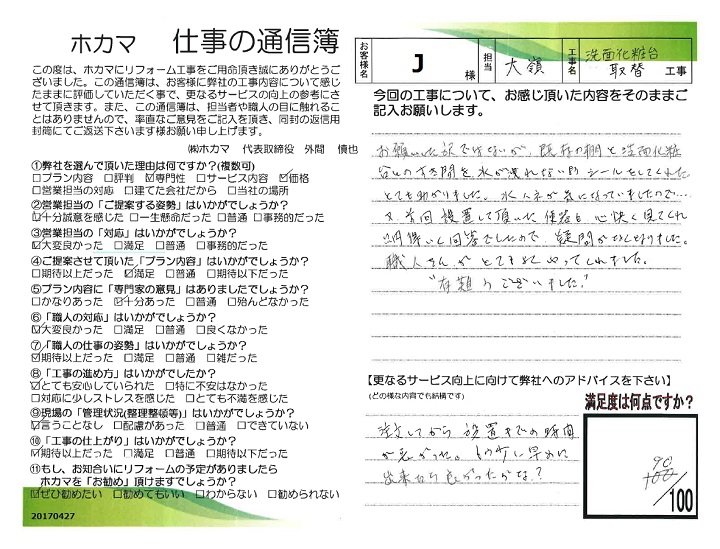 ホカマ 仕事の通信簿
この度は、ホカマにリフォーム工事をご用命頂き誠にありがとうご
ざいました。この通信簿は、お客様に弊社の工事内容について感じ
たままに評価していただく事で、更なるサービスの向上の参考にさ
せて頂きます。また、この通信簿は、担当者や職人の目に触れるこ
とはありませんので、率直なご意見をご記入を頂き、同封の返信用
封筒にてご返送下さいます様お願い申し上げます。
㈱ホカマ 代表取締役 外間 慎也
①弊社を選んで頂いた理由は何ですか?(複数可)
□プラン内容 □評判 ☑専門性 □サービス内容 ☑価格
□営業担当の対応 □建てた会社だから □当社の場所
②営業担当の「ご提案する姿勢」はいかがでしょうか?
☑十分誠意を感じた □一生懸命だった □普通 □事務的だった
③営業担当の「対応」はいかがでしょうか?
☑大変良かった □満足 □普通 □事務的だった
④ご提案させて頂いた「プラン内容」はいかがでしょうか?
□期待以上だった ☑満足 □普通 □期待以下だった
⑤プラン内容に「専門家の意見」はありましたでしょうか?
□かなりあった ☑十分あった □普通 □殆んどなかった
⑥「職人の対応」はいかがでしょうか?
☑大変良かった □満足 □普通 □良くなかった
⑦「職人の仕事の姿勢」はいかがでしょうか?
☑期待以上だった □満足 □普通 □雑だった
⑧「工事の進め方」はいかがでしたか?
☑とても安心していられた □特に不安はなかった
□対応に少しストレスを感じた □とても不満を感じた
⑨現場の「管理状況(整理整頓等)」はいかがでしょうか?
☑言うことなし □配慮があった □普通 □できていない
⑩「工事の仕上がり」はいかがでしょうか?
☑期待以上だった □満足 □普通 □期待以下だった
⑪もし、お知合いにリフォームの予定がありましたら
ホカマを「お勧め」頂けますでしょうか?
☑ぜひ勧めたい □勧めてもいい □わからない □勧められない
20170427
お客様名 J 様 担当 大嶺 工事名 洗面化粧台
取替 工事
今回の工事について、お感じ頂いた内容をそのままご
記入お願いします。
お願いした訳ではないが、既存の棚と洗面化粧
台との間を水が流れない様シールをしてくれ
とても助かりました。水ハネが気になっていましたので…
又、前回設置して頂いた便器も心快く見てくれ
職人さんがとてもよくやってくれました。
"有難うございました。"
【更なるサービス向上に向けて弊社へのアドバイスを下さい】
(どの様な内容でも結構です)
注文してから設置までの時間
が長かった。もう少し早めに
出来たら良かったかな?
満足度は何点ですか?
90
100
/100